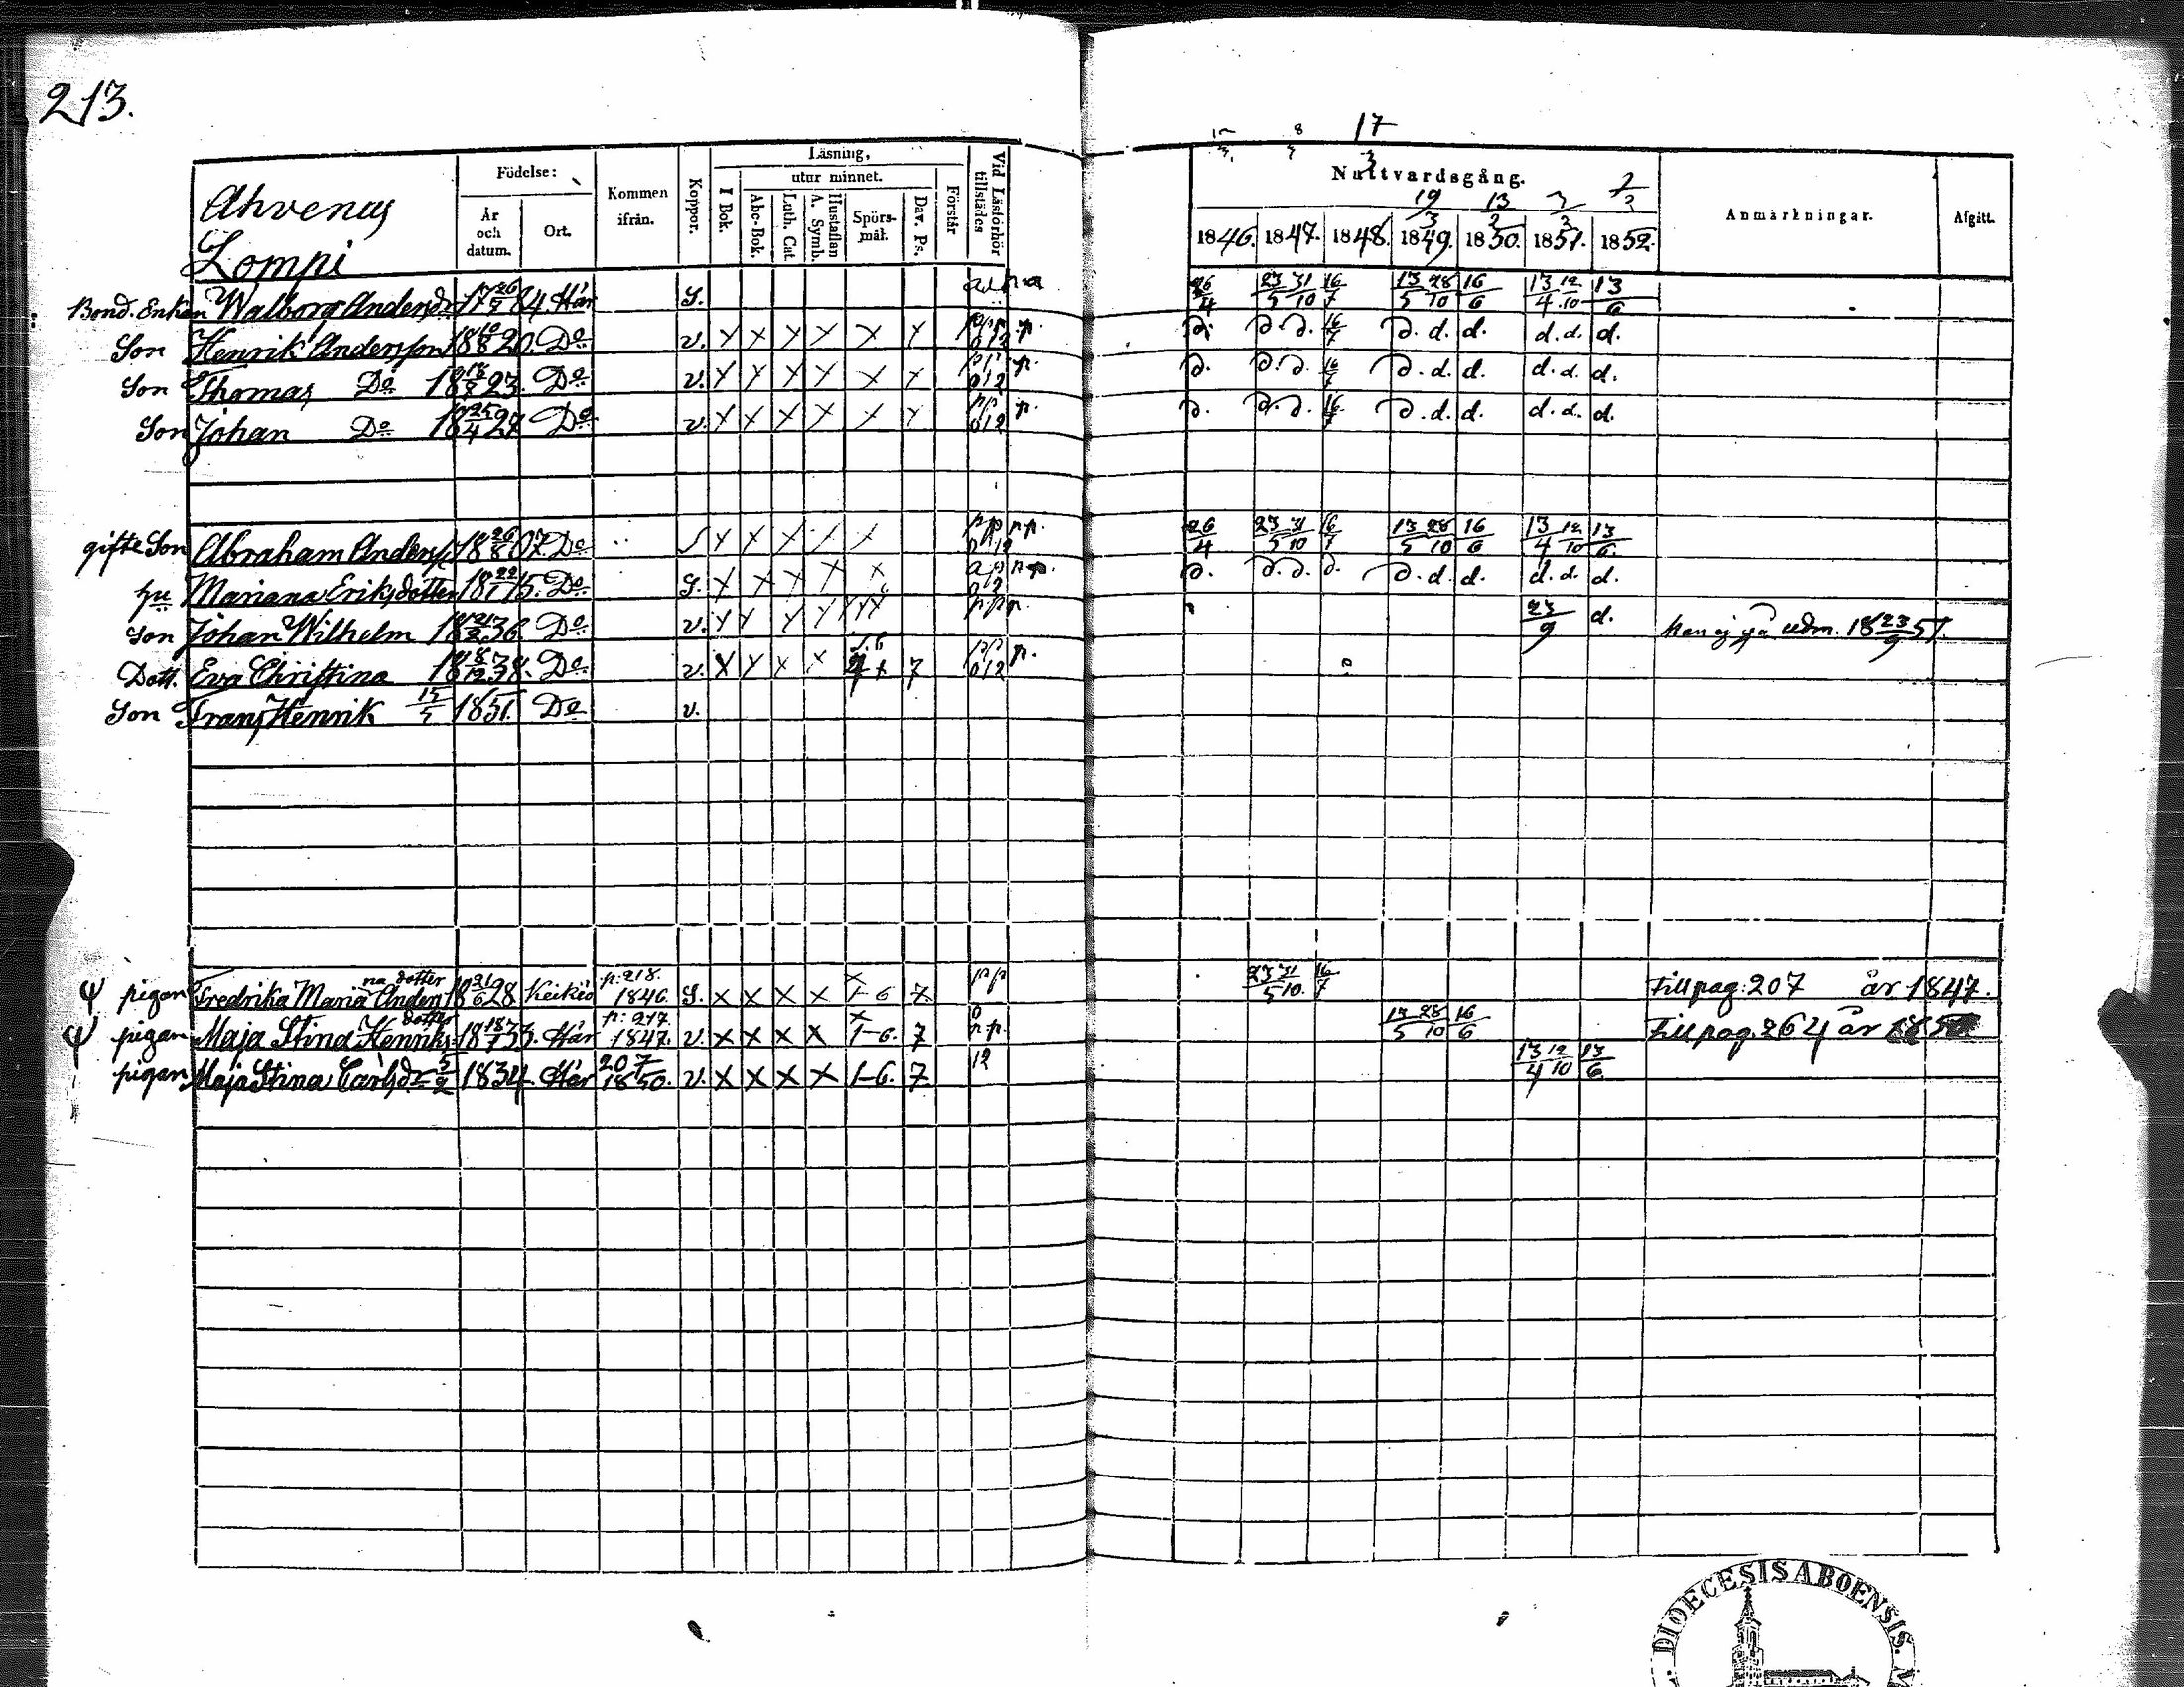 213.
17
Ahvenus
Lompi
Födelse:
År och datum.
Ort.
Kommen ifrån.
Koppor.
Läsning,
I Bok.
utur minnet.
Abc-Bok.
Luth. Cat.
A. Symb.
Hustaflan
Spörs-mål.
Dav. Ps.
Förstår
Vid Läsförhör tillstädes
Nattvardsgång.
19/3 13/2
1846. 1847. 1848. 1849. 1850. 1851. 1852.
Anmärkningar.
Afgått.
Bond. Enkan Walborg Andersdr 1784 Här S. 26/4 23/5 31/10 16/7 13/5 28/10 16/6 13/4 12/10 13/6
Son Henrik Andersson 18 10/8 20. Do v. x x x x x x d. d. d. 16/7 d. d. d. d. d. d.
Son Thomas Do 18 18/8 23. Do v. x x x x x x d. d. d. 16/7 d. d. d. d. d. d.
Son Johan Do 18 25/4 27 Do v. x x x x x x d. d. d. 16/7 d. d. d. d. d. d.
gifte Son Abraham Anders 18 26/8 07 Do x x x x x 26/4 23/5 31/10 16/7 13/5 28/10 16/6 13/4 12/10 13/6.
hu Mariana Eriksdotter 18 22/1 15. Do S. x x x x x d. d. d. d. d. d. d. d. d. d.
Son Johan Wilhelm 18 21/2 36. Do v. 23/9 d. 18 23/9 51.
Dott. Eva Christina 18 8/12 38. Do v. x x x x 7 p.
Son Frans Henrik 15/5 1851. Do v.
pigan Fredrika Maria Anders dotter 18 21/6 28 Keikis p: 218. 1846. S. x x x x 1-6 7. pp 23/5 31/10. 16/7 Till pag: 207 år 1847.
pigan Maja Stina Henriks dotter 18 18/7 33. Här p: 217 1847. v. x x x x 1-6. 7 p.p. 13/5 28/10 16/6 Till pag. 264 år
pigan Maja Stina Carlsdr 5/2 1834. Här 207 1850. v. x x x x 1-6. 7. 12 13/4 12/10 13/6.
DIOECESIS ABOENSIS.